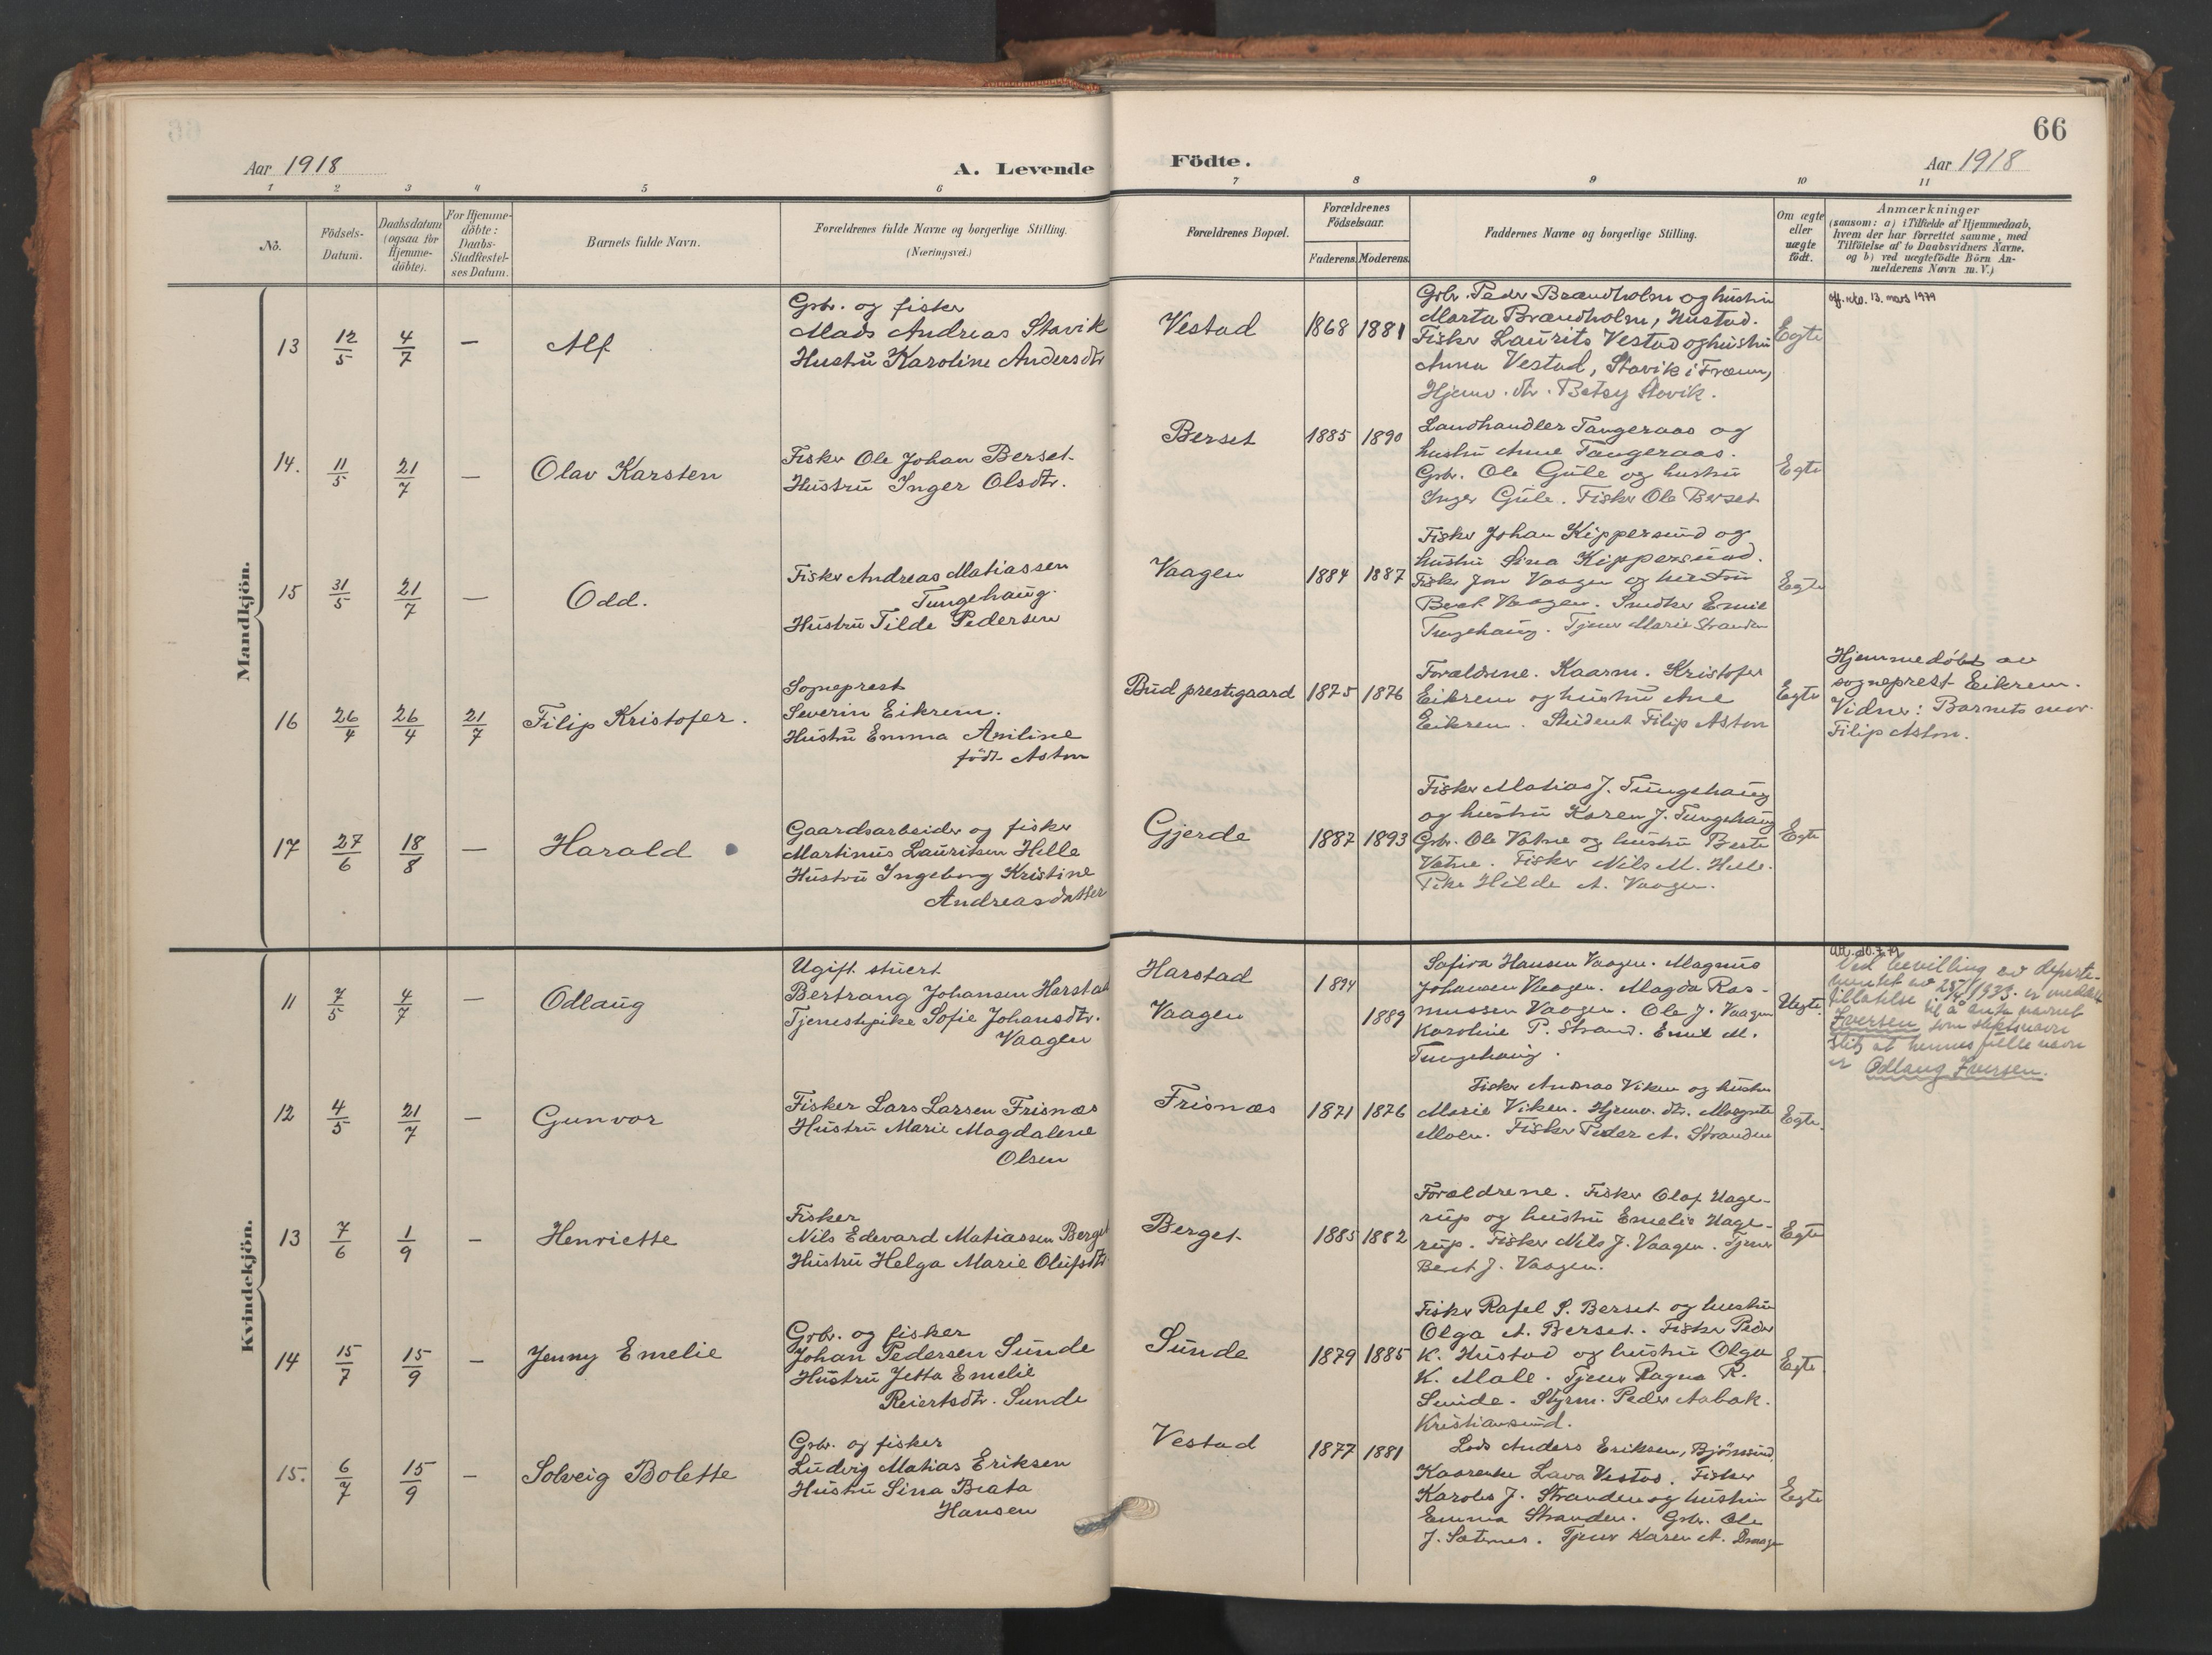 66
Aar 1918
A. Levende Födte.
Aar 1918
1 2 3 4 5 6 7 8 9 10 11
No.
Födsels-
Datum.
Daabsdatum
(ogsaa for
Hjemme-
döbte).
For Hjemme-
döbte:
Daabs-
Stadfæstel-
ses Datum.
Barnets fulde Navn.
Forældrenes fulde Navne og borgerlige Stilling.
(Næringsvei.)
Forældrenes Bopæl.
Forældrenes
Födselsaar.
Faderens. Moderens.
Faddernes Navne og borgerlige Stilling.
Om ægte
eller
uægte
födt.
Anmærkninger
(saasom: a) i Tilfælde af Hjemmedaab,
hvem der har forrettet samme, med
Tilföielse af to Daabsvidners Navne.
og b) ved uægtefödte Börn An-
melderens Navn m. V.)
Mandkjön.
13
12/5
4/7
—
Alf
Grbr. og fisker
Mads Andreas Stavik
Hustru Karoline Andersdtr
Vestad
1868 1881
Grbr. Peder Brandholm og hustru
Marta Brandholm, Hustad.
Fisker Laurits Vestad og hustru
Anna Vestad, Stavik i Fræna,
Hjemv. dtr. Betsy Stavik.
Egte
13. mars 1979
14.
11/5
21/7
—
Olav Karsten
Fisker Ole Johan Berset
Hustru Inger Olsdtr.
Berset
1885 1890
Landhandler Tangeraas og
hustru Anne Tangeraas.
Grbr. Ole Gule og hustru
Inger Gule. Fisker Ole Berset
Egte
15
31/5
21/7
—
Odd.
Fisker Andreas Matiassen
Tungehaug.
Hustru Tilde Pedersen
Vaagen
1884 1887
Fisker Johan Kippersund og
hustru Sina Kippersund.
Fisker Jon Vaagen og hustru
Berit Vaagen. Snedker Emil
Tungehaug. Tjener Marie Stranden
Egte
16
26/4
26/4
21/7
Filip Kristofer.
Sogneprest
Severin Eikrem.
Hustru Emma Amiline
født Aston
Bud prestegaard
1875 1876
Foraldrene. Kaarm. Kristofer
Eikrem og hustru Ane
Eikrem. Student Filip Aston
Egte
Hjemmedøbt av
sogneprest Eikrem.
Vidner: Barnets mor.
Filip Aston.
17
27/6
18/8
—
Harald
Gaardsarbeider og fisker
Martinus Lauritsen Hille
Hustru Ingeborg Kristine
Andreasdatter
Gjerde
1887 1893
Fisker Matias J. Tungehaug
og hustru Karen J. Tungehaug
Grbr. Ole Vatne og hustru Berte
Vatne. Fisker Nils M. Hille.
Pike Hilde A. Vaagen.
Egte
Kvindekjön.
11
7/5
4/7
—
Odlaug
Ugift stuert
Bertrang Johansen Harstad
Tjenestepike Sofie Johansdtr.
Vaagen
Harstad
Vaagen
1894
1889
Safira Hansen Vaagen. Magnus
Johansen Vaagen. Magda Ras-
mussen Vaagen. Ole J. Vaagen
Karoline P. Strand. Emil M.
Tungehaug.
Uegte.
Ved bevilling av departe-
mentet av 1933. er meddelt
tillatelse til å anta navnet
Iversen som slektsnavn
slik at hennes fulle navn
er Odlaug Iversen.
12
4/5
21/7
—
Gunvor
Fisker Lars Larsen Frisnæs
Hustru Marie Magdalene
Olsen
Frisnæs
1871 1876
Fisker Andreas Viken og hustru
Marie Viken. Hjemv. dtr. Margrete
Moen. Fisker Peder A. Stranden
Egte.
13
7/6
1/9
—
Henriette
Fisker
Nils Edevard Matiassen Berget
Hustru Helga Marie Olufsdtr.
Berget
1885 1882
Foraldrene. Fisker Olaf Hage-
rup og hustru Emelie Hage-
rup. Fisker Nils J. Vaagen. Tjener
Berit J. Vaagen.
Egte
14
15/7
15/9
—
Jenny Emelie
Grbr. og fisker
Johan Pedersen Sunde
Hustru Jetta Emelie
Reiertsdtr. Sunde
Sunde
1879 1885
Fisker Rafel P. Berset og hustru
Olga A. Berset. Fisker Peder
K. Hustad og hustru Olga
K. Male. Tjener Ragna R.
Sunde. Styrm. Peder Aabak.
Kristiansund.
Egte.
15.
6/7
15/9
—
Solveig Bolette
Grbr. og fisker
Ludvig Matias Eriksen
Hustru Sina Beata
Hansen
Vestad
1877 1881
Lods Anders Eriksen, Bjørnsund,
Kaarenke Lava Vestad. Fisker
Karolus J. Stranden og hustru
Emma Stranden. Grbr. Ole
J. Sæternes. Tjener Karen A.
Egte